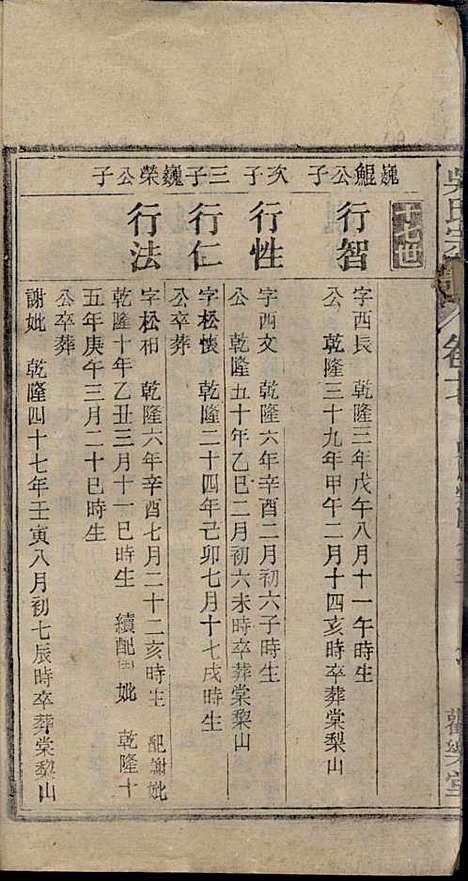 吳氏宗
卷
觀樂堂
世
巍鯤公子
行智
字西辰　乾隆三年戊午八月十一午時生
公　乾隆三十九年甲午二月十四亥時卒葬棠梨山
次子
行性
字西文　乾隆六年辛酉二月初六子時生
公　乾隆五十年乙巳二月初六未時卒葬棠梨山
三子
行仁
字松懐　乾隆二十四年己卯七月十七戌時生
公卒葬
巍榮公子
行法
字松和　乾隆六年辛酉七月二十二亥時生　配謝妣
乾隆十年乙丑三月十一巳時生　續配　妣　乾隆十
五年庚午三月二十巳時生
公卒葬
謝妣　乾隆四十七年壬寅八月初七辰時卒葬棠梨山